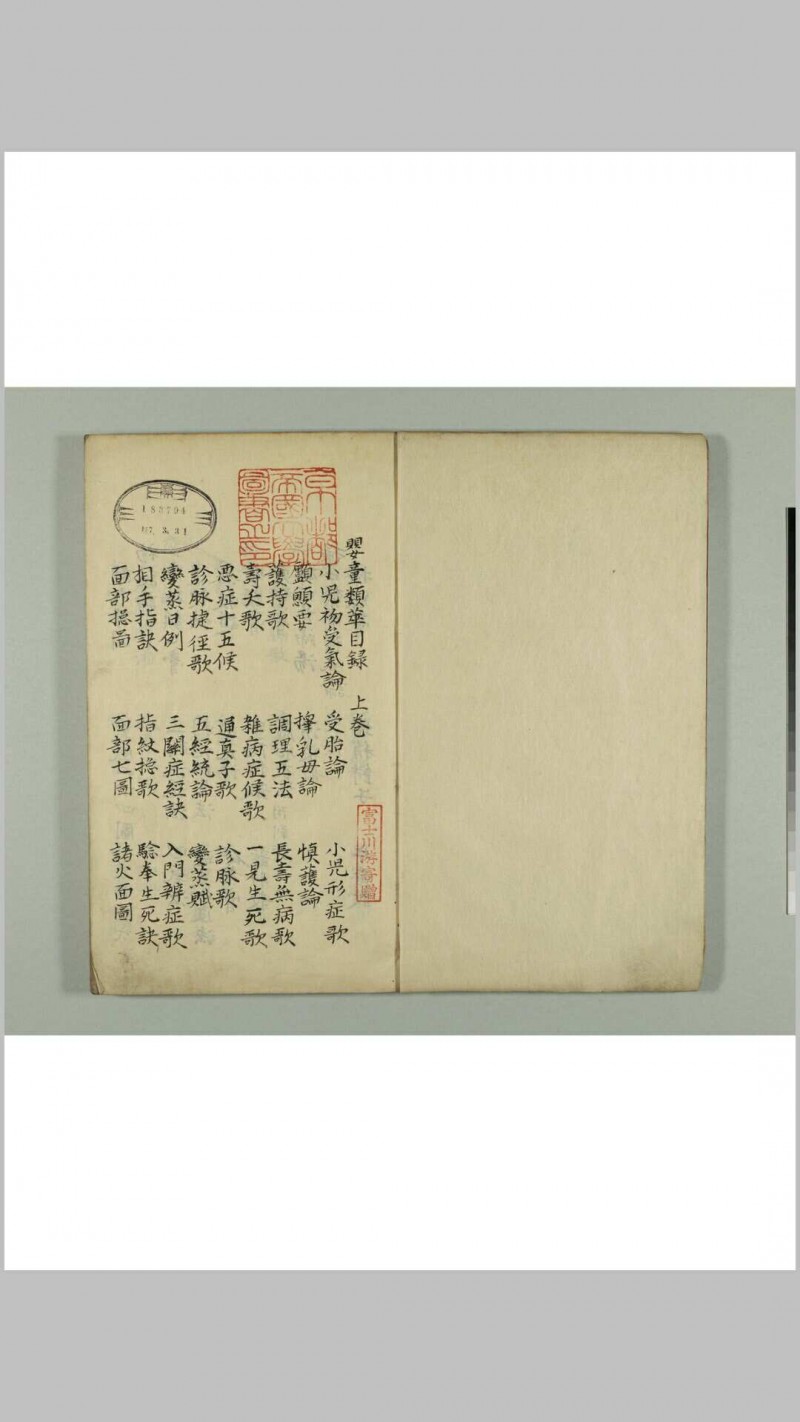 嬰童類萃目録　上巻
小児初受氣論　受胎論　小児形症歌
顖顖要　擇乳母論　慎護論
護持歌　調理五法　長壽無病歌
壽夭歌　雜病症候歌　一見生死歌
悪症十五候　通真子歌　診脉歌
診脉捷徑歌　五經統論　變蒸賦
變蒸日例　三關症經訣　入門辨症歌
相手指訣　指紋捴歌　驗拳生死訣
面部捴圖　面部七圖　諸火面圖
富士川游寄贈
京都帝國大學圖書之印
183794
3.31